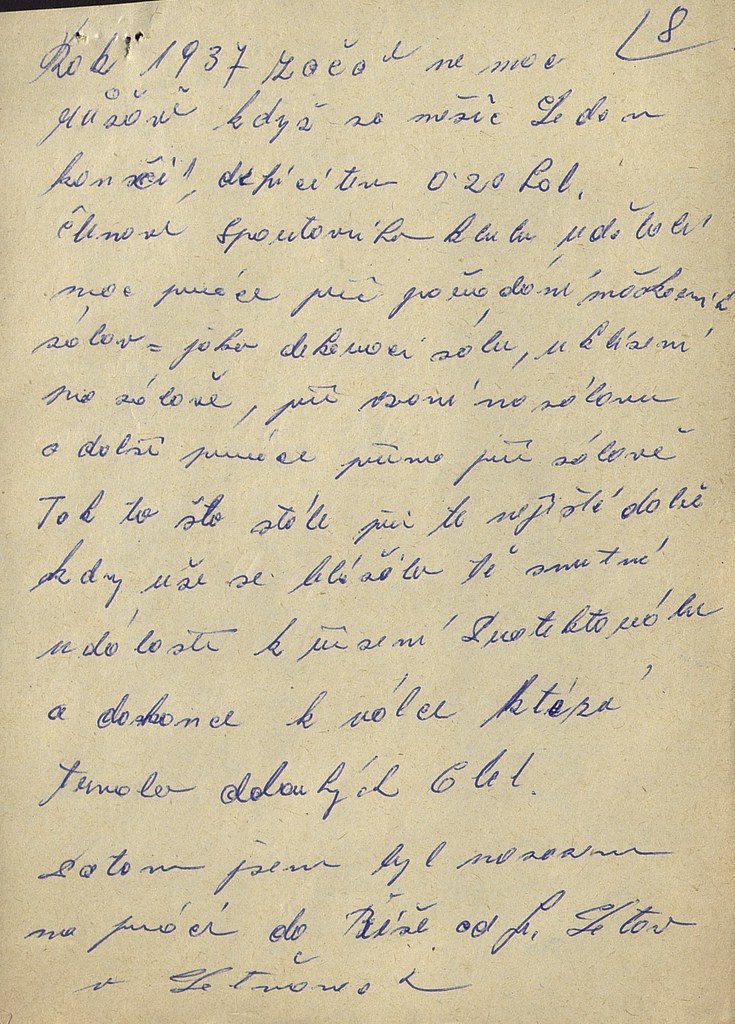 8
Rok 1937 začal ne moc
růžově když za měsíc Leden
končil, deficitem 0.20 hal.
členové Sportovního klubu udělali
moc práce při pořádání maškarních
zábav = jako dekoraci sálu, uklízení
po zábavě, při zvaní na zábavu
a další práce přímo při zábavě
Tak to šlo stále při té nejisté době
kdy uže se blížila té smutné
události k řízení Protektorátu
a dokonce k válce která
trvala dlouhých 6 let.
Potom jsem byl nasazen
na práci do Říše od f. Letov
v Letňanech